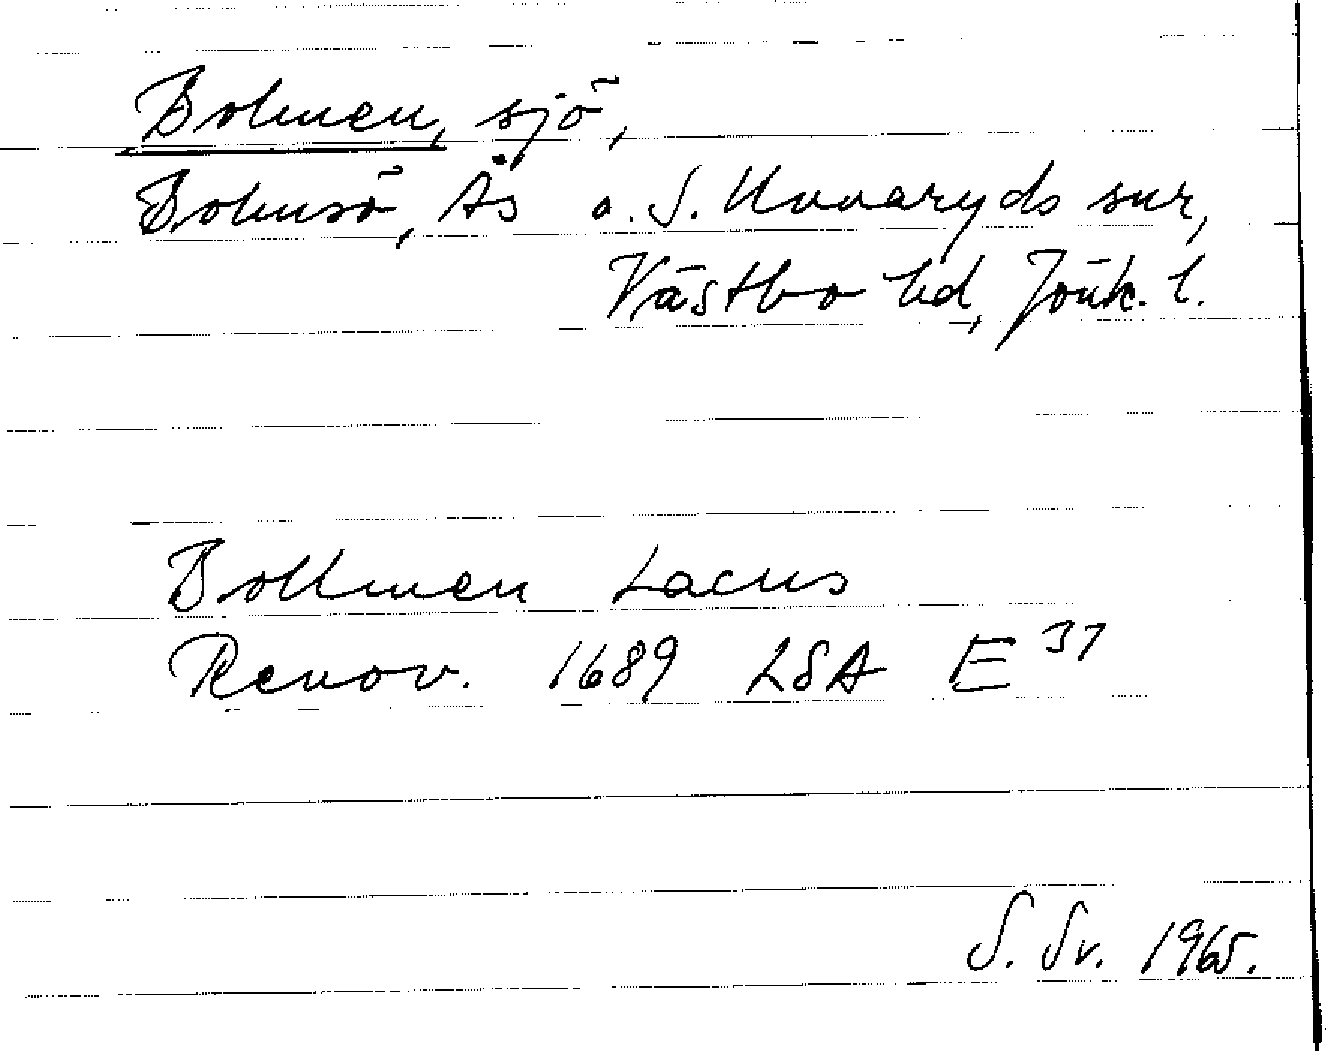 Bolmen, sjö,
Bolmsö, Ås o. S. Unnaryds snr,
Västbo hd, Jönk. l.
Bollmen Lacus
Renov. 1689 LSA E 31
S. Sv. 1965.